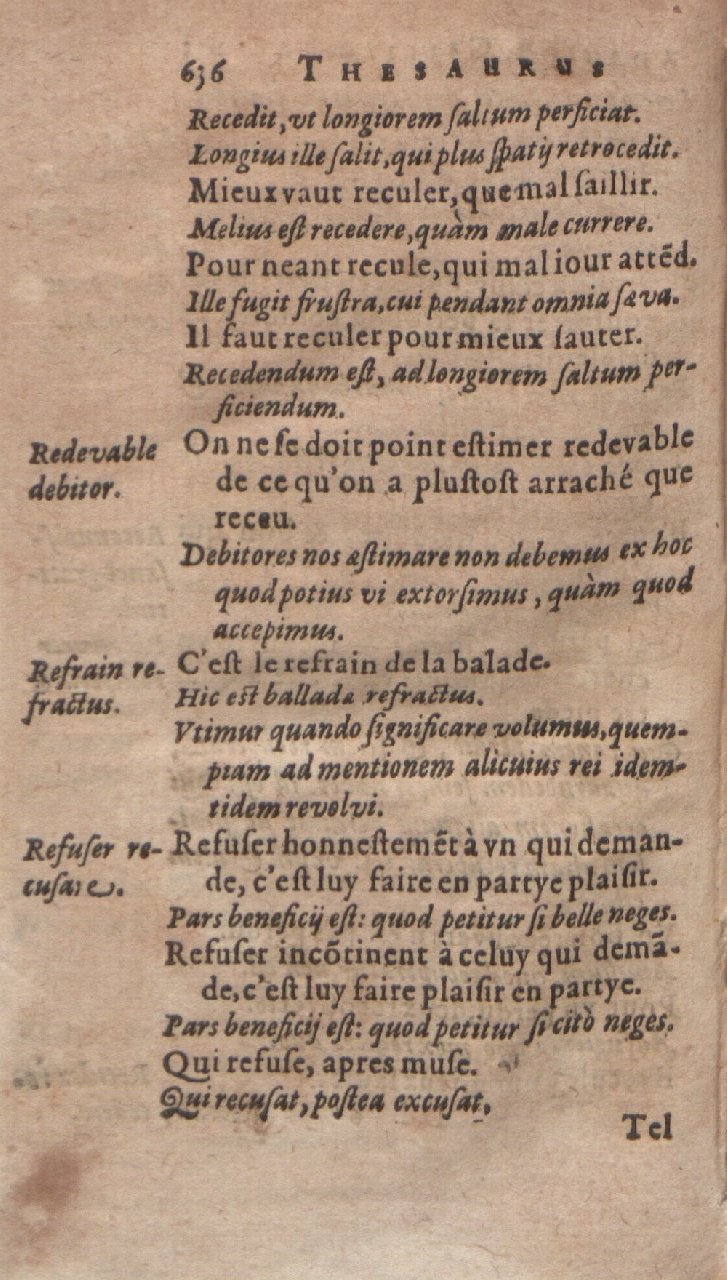 636 THESAURUS
Recedit, vt longiorem ſaltum perficiat.
Longius ille ſalit, qui plus ſpatij retrocedit.
Mieux vaut reculer, que mal ſaillir.
Melius eſt recedere, quàm male currere.
Pour neant recule, qui mal iour attẽd.
Ille fugit fruſtra, cui pendant omnia ſæva.
Il faut reculer pour mieux ſauter.
Recedendum eſt, ad longiorem ſaltum per-
ficiendum.
Redevable
debitor.
On ne ſe doit point eſtimer redevable
de ce qu'on a pluſtoſt arraché que
receu.
Debitores nos æſtimare non debemus ex hoc
quod potius vi extorſimus, quàm quod
accepimus.
Refrain re-
fractus.
C'eſt le refrain de la balade.
Hic eſt balladæ refractus.
Vtimur quando ſignificare volumus, quem-
piam ad mentionem alicuius rei idem-
tidem revolvi.
Refuſer re-
cuſare.
Refuſer honneſtemẽt à vn qui deman-
de, c'eſt luy faire en partye plaiſir.
Pars beneficij eſt: quod petitur ſi belle neges.
Refuſer incõtinent à celuy qui demã-
de, c'eſt luy faire plaiſir en partye.
Pars beneficij eſt: quod petitur ſi citò neges.
Qui refuſe, apres muſe.
Qui recuſat, poſtea excuſat.
Tel